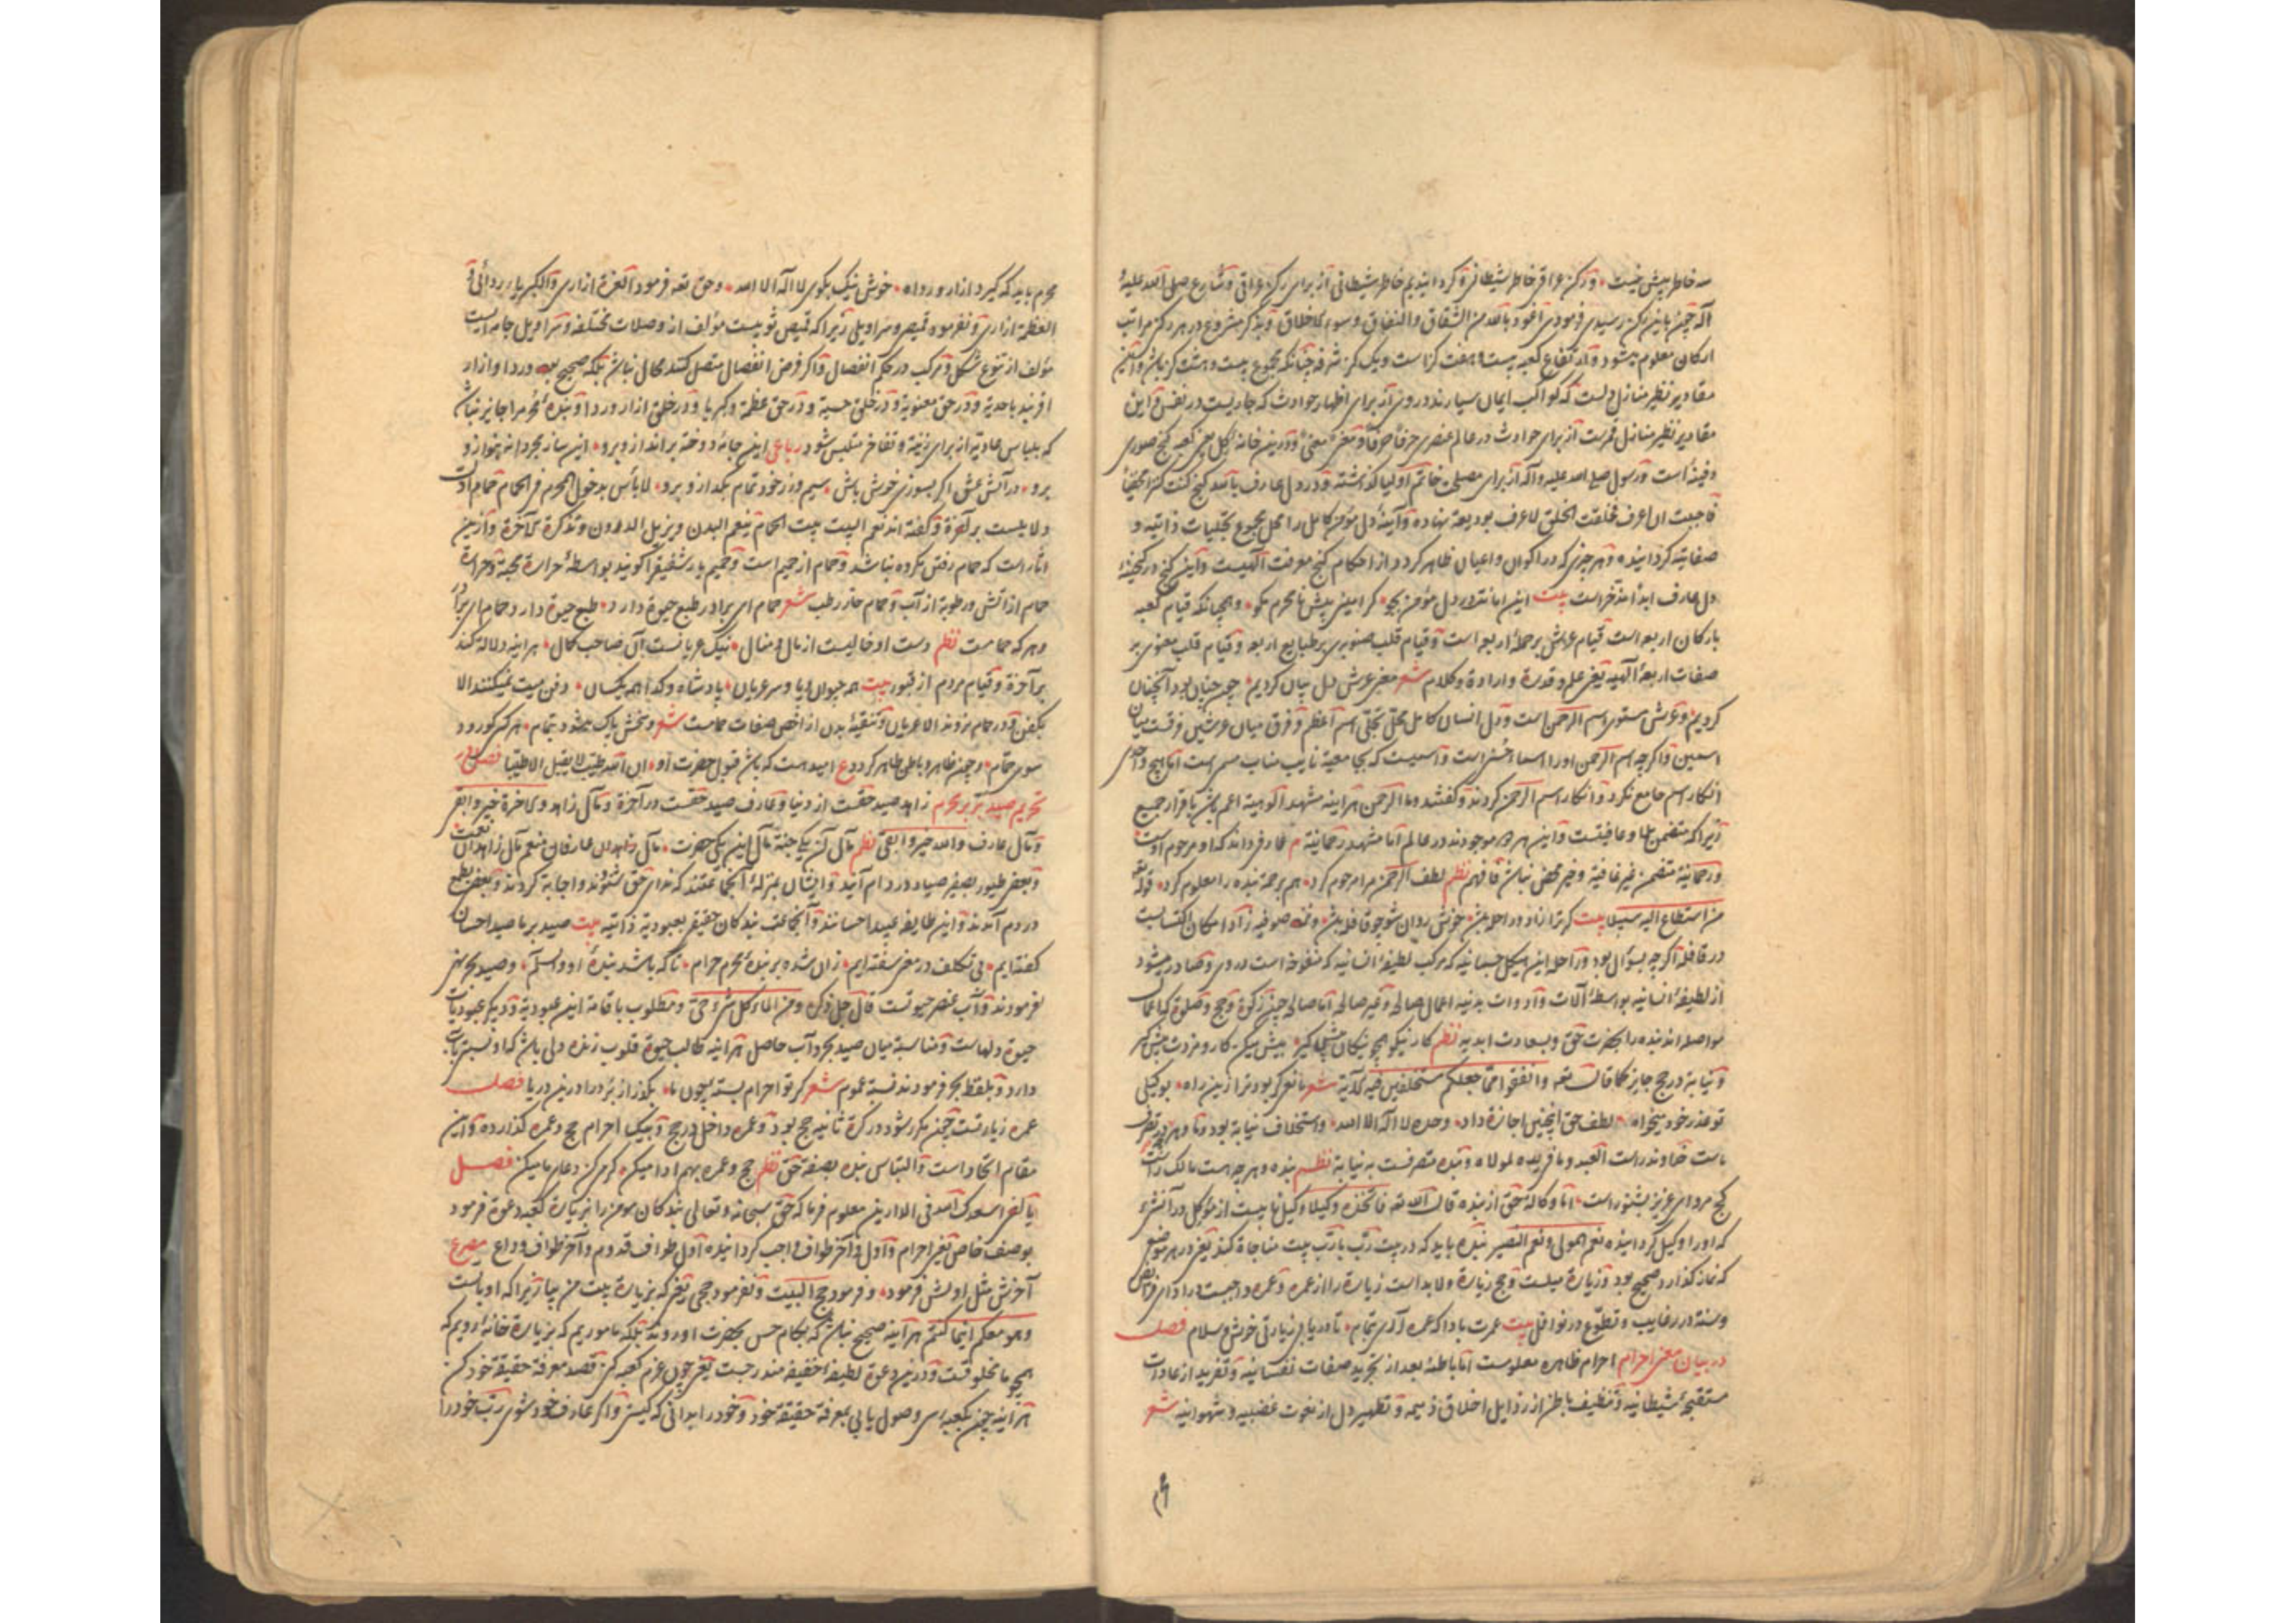 سه خاطر بیش نیست و رکن عراقی خاطر شیطانی کردانیدیم خاطر شیطانی از برای رکن عراقی و شارع صلی الله علیه
آله چون باین رکن رسیدی فرمودی اعوذ بالله من الشقاق والنفاق وسوء الاخلاق و بذکر مشروع در هر رکن مراتب
ارکان معلوم میشود و ارتفاع کعبه بیست و هفت کز است و یک کز شرفه چنانکه مجموع بیست و هشت کز باشد و این
مقادیر نظیر منازل دلست که کواکب ایمان سیارند درون آن برای اظهار حوادث که جاریست در نفس و این
مقادیر نظیر منازل قمرست از برای حوادث در عالم عنصری حرفا حرفا و معنی معنی و درین خانه کل یعنی کعبه کنج صوری
دفینه است و رسول صلی الله علیه و آله از برای مصلحت خاتم اولیا گذاشته و در دل عارف بالله کنج کنت کنزا مخفیا
فاجبت ان اعرف فخلقت الخلق لاعرف بودیعة نهاده و آیینه دل مؤمن کامل را محل مجموع تجلیات ذاتیه و
صفاتیه کردانیده و هر چیزی که در اکوان و اعیان ظاهر کردد از احکام کنج معرفت الهیست و این کنج در کنجینه
دل عارف ابدا مدخرست بیت این امانت در دل مؤمن بجو کر امینی پیش نامحرم مکو و همچنانکه قیام کعبه
بارکان اربعه است قیام عرش بر حمله اربعه است و قیام قلب صنوبری بر طبایع اربعه و قیام قلب معنوی بر
صفات اربعه الهیه یعنی علم و قدرة و ارادة و کلام شعر معنی عرش دل بیان کردیم چون چنان بود آنچنان
کردیم و عرش مستوی اسم الرحمن است و دل انسان کامل محل تجلی اسم اعظم و فرق میان عرشین فرقست میان
اسمین و اکرچه اسم الرحمن اورا اسماء حسنی است و اسمیست که بجا معیة نایب مناب مسمی است اما هیچ واحدی
انکار اسم جامع نکرد و انکار اسم الرحمن کردند و کفتند وما الرحمن هر آینه مشهد الوهیة اعم باشد باقرار جمیع
زیرا که متضمن بلا و عافیتست و این هر دو موجودند در عالم اما مشهد رحمانیة عارف داند که او مرحوم اوست
و رحمانیة متضمن غیر عافیة و خیر محض نباشد فافهم نظم لطف الرحمن مرا مرحوم کرد هم برحمة بنده را معلوم کرد قوله تعالی
من استطاع الیه سبیلا بیت کر ترا زاد و راحله باشد خوش روان شو چو قافله باشد و نزد صوفیه زاد امکان اکتسابیست
در قافلة اکرچه بسؤال بود و راحله این هیکل جسمانیه که مرکب لطیفه انسانیه که منفوخه است در وی و صادر میشود
از لطیفه انسانیه بواسطه آلات و ادوات بدنیه اعمال صالح و غیر صالح اما صالح چون زکوة و حج و صلوة که اعمال
مواصله اند بنده را بحضرت حق و بسعادت ابدیه نظم کار نیکو همچو نیکان پیش گیر بیش میکن کار و مزدت بیش گیر
و نیابة در حج جایز کما قال الله تعه وانفقوا مما جعلکم مستخلفین فیه الآیة شعر مانعی کر بود ترا زین راه بوکیلی
تو عذر خود میخواه لطف حق اینچنین اجازة داد وحده لا اله الا الله و استخلاف نیابة بود و ما در تصرف
ماست خداوند راست العبد وما فی یده لمولاه و بنده متصرفست به نیابة نظم بنده و هر چه هست مالک راست
کج مرو ای عزیز بشنو راست اما وکالة حق از بنده قال الله تعه فاتخذه وکیلا وکیل نایبست از موکل در آنشیء
که اورا وکیل کردانیده نعم المولی ونعم النصیر بنده باید که در بیت رب با رب بیت مناجاة کند یعنی در هر موضعی
که نماز کذارد صحیح بود و زیارة میلست و حج زیارة ولابد است زیارة را از عمره و عمره واجبست در ادای فرایض
و سنة در رغایب و تطوع در نوافل بیت عمرت بادا که عمره آری بتمام تا دریابی زیارتی خوش و سلام فصل
در بیان معنی احرام احرام ظاهره معلومست اما باطنه بعد از تجرید صفات نفسانیه و تفرید از عادات
مستقبحه شیطانیه و تنظیف باطن از رذایل اخلاق ذمیمه و تطهیر دل از نعوت غضبیه و شهوانیه شعر
محرم باید که کیرد ازار و رداه خوش نیک بکوی لا اله الا الله و حق تعه فرمود العزة ازاری والکبریاء ردائی و
العظمة ازاری و نفرموده قمیص و سراویل زیرا که قمیص ثوبیست مؤلف از وصلات مختلفه و سراویل جامه ایست
مؤلف از تنوع شکل و مرکب در حکم انفصال و اکر فرض انفصال متصل کنند محال نباشد بلکه صحیح بود و ردا و ازار
اقربند باحدیة و در حق معنویة و در خلق حسیة و در حق عظمة و کبریا و در خلق ازار و ردا و بنده محرم را جایز نباشد
که بلباس عادیة از برای زینة و تفاخر متلبس شود رباعی این جامه دوخته برانداز و برو این ساز مجردانه بنواز و
برو در آتش عشق اکر بسوزی خوش باش سیم و زر خود تمام بکداز و برو لا بأس بدخول المحرم فی الحمام حمام اوست
ولا یلبست برکعزة و کفته اند نعم البیت بیت الحمام ینعم البدن ویزیل الدرون وتذکرة للآخرة و ازین
آثار است که حمام رفتن مکروه نباشد و حمام از حمیم است و حمیم یار شفیق را کویند بواسطه حرارة محبة و حرارة
حمام از آتش و رطوبة از آب و حمام حار رطب شعر حمام ای برادر طبع حیوة دارد طبع حیوة دارد حمام ای برادر
و هر که حماست نظم دست او خالیست از مال و منال نیک عریانست آن صاحب کمال هر اینه دلالة کند
بر آخرة و قیام مردم از قبور بیت همه حیوان پا و سر عریان پادشاه و کدا همه یکسان دفن میت نمیکنند الا
بکفن و در حمام نروند الا عریان و تنقیه بدن از اخص صفات حماست شعر و سخش پاک میشود بتمام هر که رود
سوی حمام و چون ظاهر و باطن طاهر کردد ع امید هست که باشد قبول حضرت او ان الله طیب لا یقبل الا طیبا فصل در
تحریم صید بر بر محرم زاهد صید حقست از دنیا و عارف صید حقست در آخرة و مآل زاهد و الآخرة خیر وابقی
و مآل عارف والله خیر وابقی نظم مآل آن یکی جنة مآل این یکی حضرت مآل زاهدان نعمت
و بعضی طیور بصفیر صیاد در دام آیند و ایشان بمنزله آنجماعتند که ندای حق شنوند و اجابة کردند و بعضی بطمع
در دام آمدند و این طایفه عبید احسانند و آنجماعت بندکان حقیقی بعبودیة ذاتیه بیت صید بر با صید احسان
کفته ایم بی تکلف در معنی سفته ایم زان شده بر بنده محرم حرام تا که باشد بنده او والسلام و صید بحر نهی
نفرمودند و آب عنصر حیوتست قال جل ذکره ومن الماء کل شیء حی و مطلوب باقامة این عبودیة و دیکر عبودیات
حیوة دلهاست و مناسبة میان صید بحر و آب حاصل هر اینه طالب حیوة قلوب زنده دلی باشد که او نسبتی بآب
دارد و بلفظ بحر فرمودند نسبة عموم شعر کر تو احرام بسته چون ما بکذر از بر در آ در این دریا فصل
عمره زیارتست چون مکرر شود در کرة ثانیه حج بود و عمره داخل در حج و بیک احرام حج و عمره کذارده و این
مقام اتحاد است و التباس بنده بصفة حق نظم حج و عمره بهم ادا میکن کرم کن دعای ما میکن فصل
ایا الغر اسعدک الله فی الدارین معلوم فرما که حق سبحانه و تعالی بندکان مومن را بزیارة کعبه دعوة فرمود
بوصف خاص یعنی احرام و اول و آخر طواف واجب کردانیده اول طواف قدوم و آخر طواف وداع مصرع
آخرش مثل اولش فرمود و فرمود حج البیت و نفرمود حجی یعنی که بزیارة بیت من بیا زیرا که او باماست
وهو معکم اینما کنتم هر آینه صحیح نباشد که بحکام حس بحضرت او روند بلکه ماموریم که بزیارة خانه رویم که
همچو ما مخلوقست و درین دعوة لطیفه خفیفه مندرجست یعنی چون عزم کعبه کنی قصد معرفة حقیقة خود کن
هر آینه چون بکعبه ای وصول یابی بمعرفة حقیقة خود و خود را بدانی که کیستی و اکر عارف خود شوی رب خود را